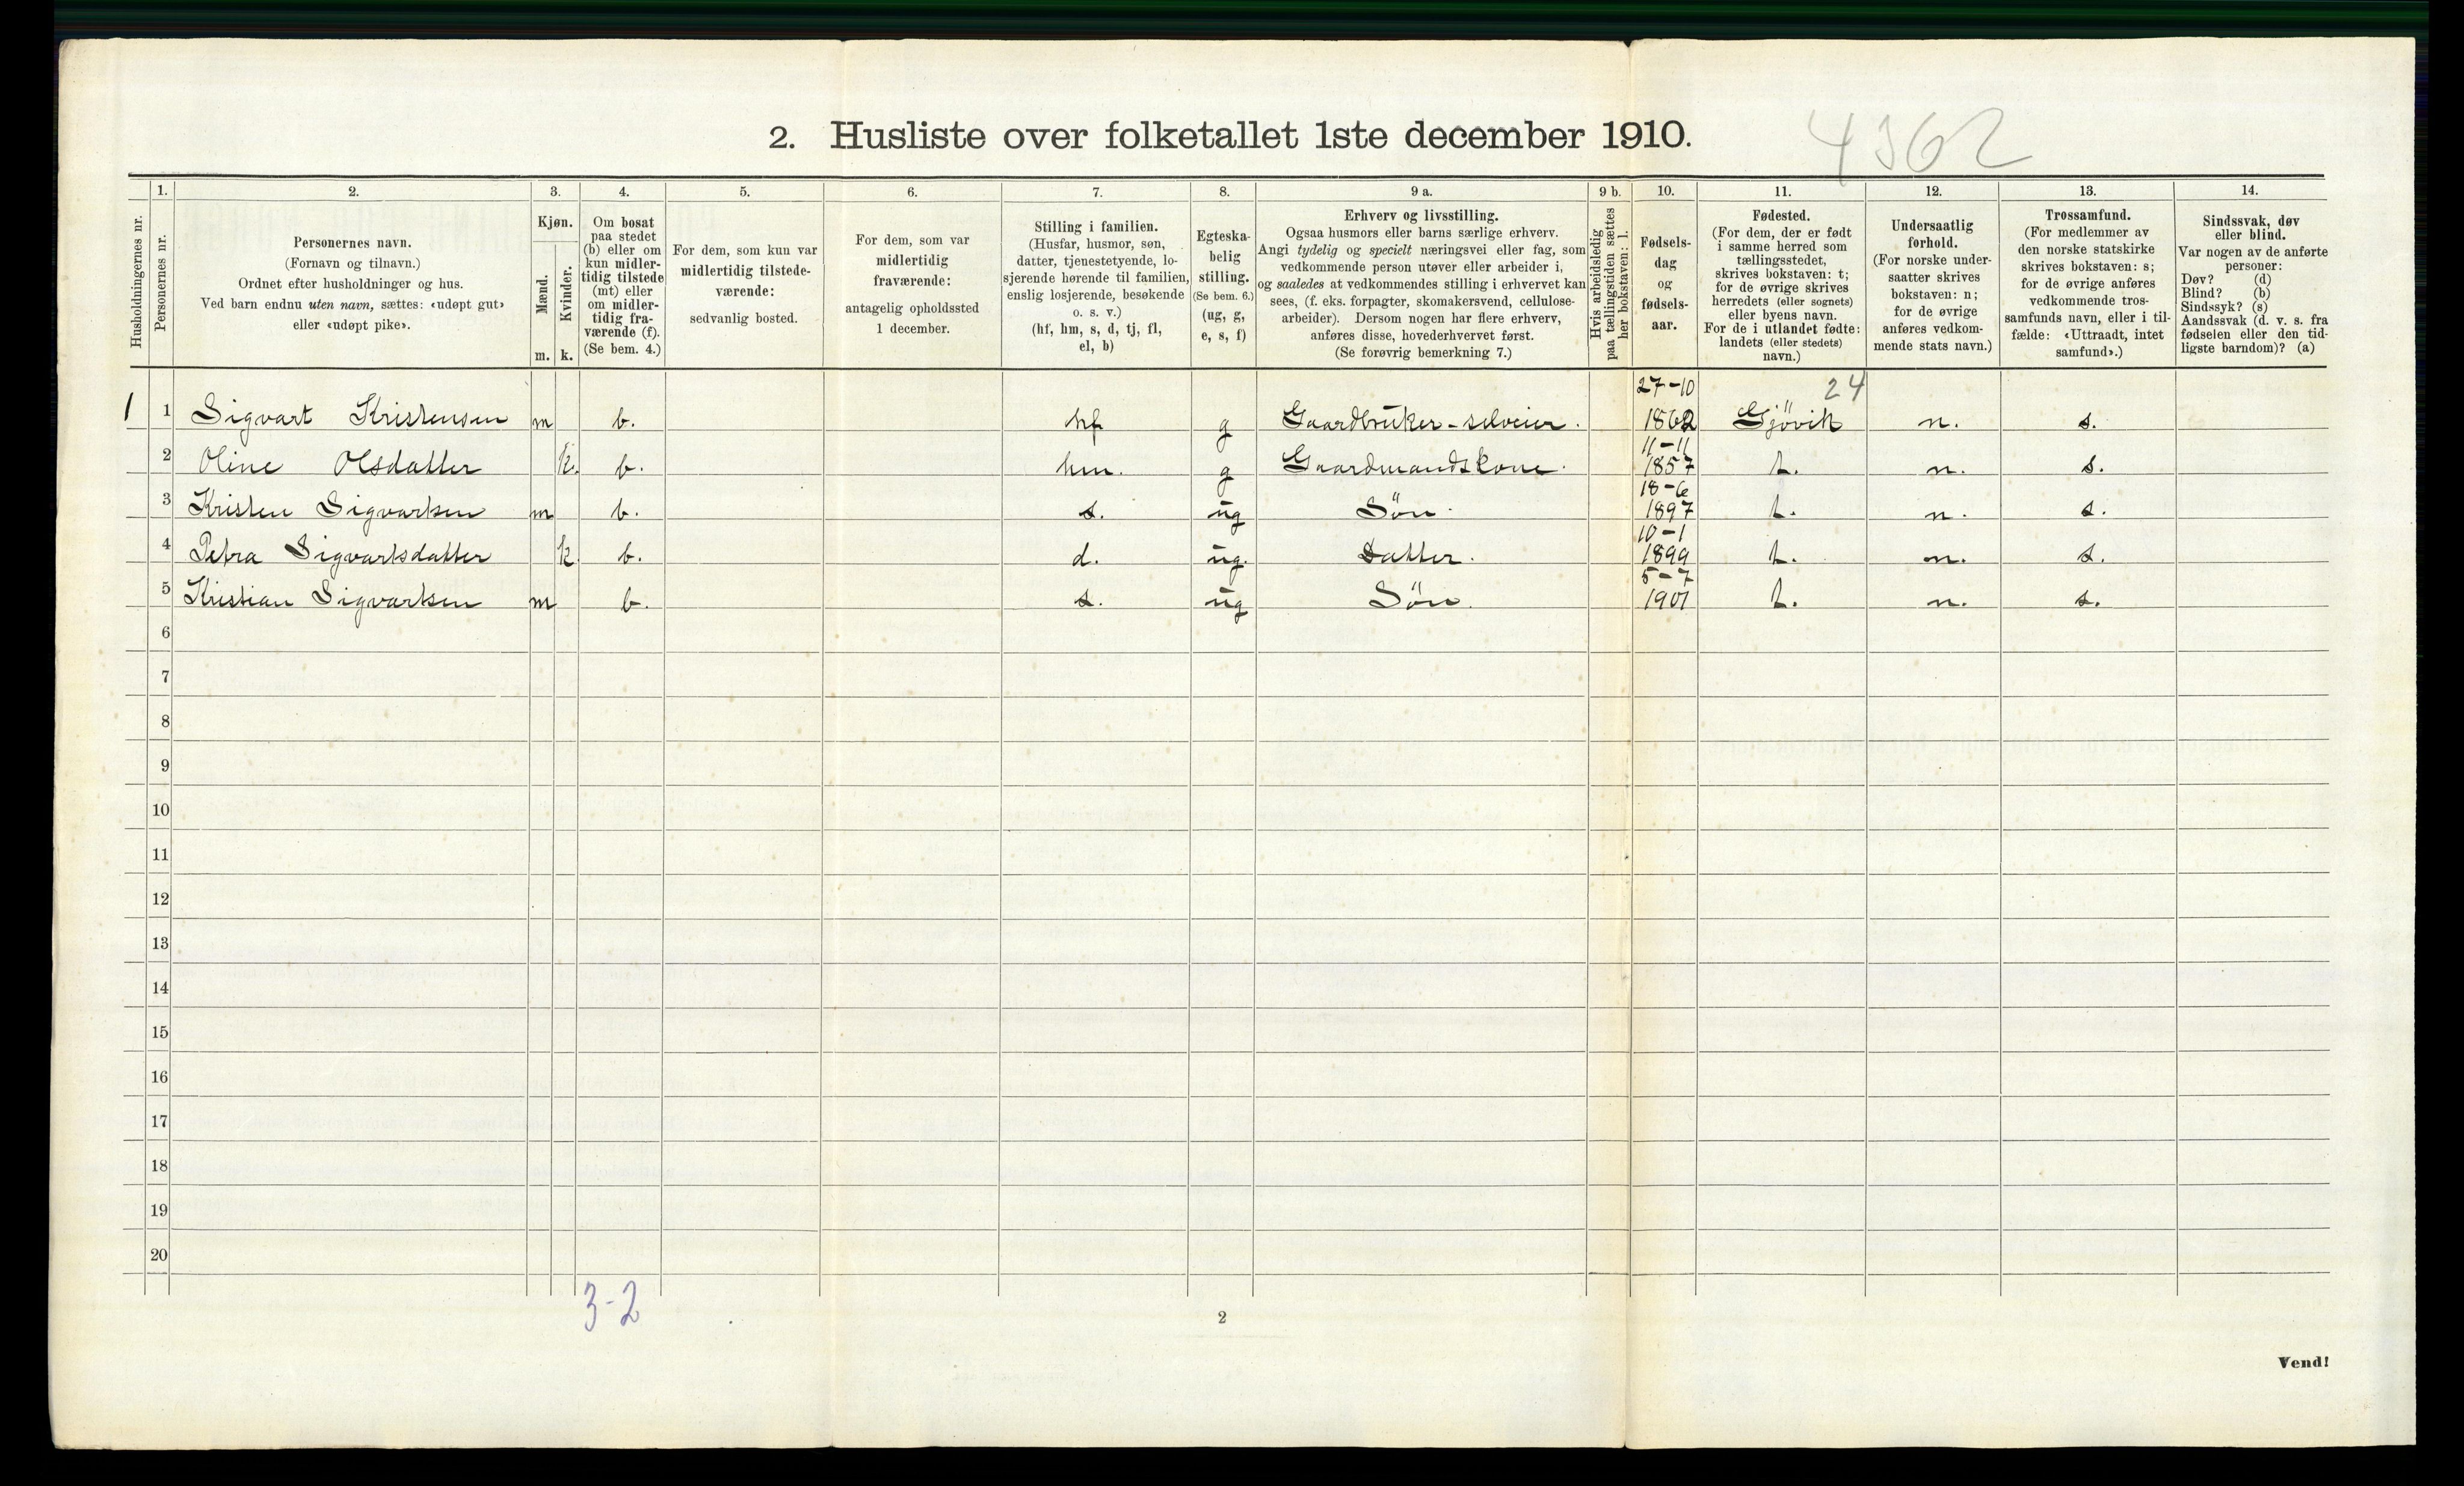 2. Husliste over folketallet 1ste december 1910.
4362
Husholdningernes nr.
1.
Personernes nr.
2.
Personernes navn.
(Fornavn og tilnavn.)
Ordnet efter husholdninger og hus.
Ved barn endnu uten navn, sættes: «udøpt gut»
eller «udøpt pike».
3.
Kjøn.
Mænd.
Kvinder.
m. k.
4.
Om bosat
paa stedet
(b) eller om
kun midler-
tidig tilstede
(mt) eller
om midler-
tidig fra-
værende (f).
(Se bem. 4.)
5.
For dem, som kun var
midlertidig tilstede-
værende:
sedvanlig bosted.
6.
For dem, som var
midlertidig
fraværende:
antagelig opholdssted
1 december.
7.
Stilling i familien.
(Husfar, husmor, søn,
datter, tjenestetyende, lo-
sjerende hørende til familien,
enslig losjerende, besøkende
o. s. v.)
(hf, hm, s, d, tj, fl,
el, b)
8.
Egteska-
belig
stilling.
(Se bem. 6.)
(ug, g,
e, s, f)
9 a.
Erhverv og livsstilling.
Ogsaa husmors eller barns særlige erhverv.
Angi tydelig og specielt næringsvei eller fag, som
vedkommende person utøver eller arbeider i,
og saaledes at vedkommendes stilling i erhvervet kan
sees, (f. eks. forpagter, skomakersvend, cellulose-
arbeider). Dersom nogen har flere erhverv,
anføres disse, hovederhvervet først.
(Se forøvrig bemerkning 7.)
9 b.
Hvis arbeidsledig
paa tællingstiden sættes
her bokstaven: l.
10.
Fødsels-
dag
og
fødsels-
aar.
11.
Fødested.
(For dem, der er født
i samme herred som
tællingsstedet,
skrives bokstaven: t;
for de øvrige skrives
herredets (eller sognets)
eller byens navn.
For de i utlandet fødte:
landets (eller stedets)
navn.)
12.
Undersaatlig
forhold.
(For norske under-
saatter skrives
bokstaven: n;
for de øvrige
anføres vedkom-
mende stats navn.)
13.
Trossamfund.
(For medlemmer av
den norske statskirke
skrives bokstaven: s;
for de øvrige anføres
vedkommende tros-
samfunds navn, eller i til-
fælde: «Uttraadt, intet
samfund».)
14.
Sindssvak, døv
eller blind.
Var nogen av de anførte
personer:
Døv? (d)
Blind? (b)
Sindssyk? (s)
Aandssvak (d. v. s. fra
fødselen eller den tid-
ligste barndom)? (a)
27-10 24
1 1 Sigvart Kristensen m b. hf g Gaardbruker-selveier. 1862 Gjövik n. s.
11-11
2 Oline Olsdatter k. b. hm. g Gaardmandskone. 1857 t. n. s.
18-6
3 Kristen Sigvartsen m b. s. ug Sön. 1897 t. n. s.
10-1
4 Petra Sigvartsdatter k. b. d. ug. Datter. 1899 t. n. s.
5-7
5 Kristian Sigvartsen m b. s. ug Sön. 1901 t. n. s.
6
7
8
9
10
11
12
13
14
15
16
17
18
19
20
3-2
2
Vend!